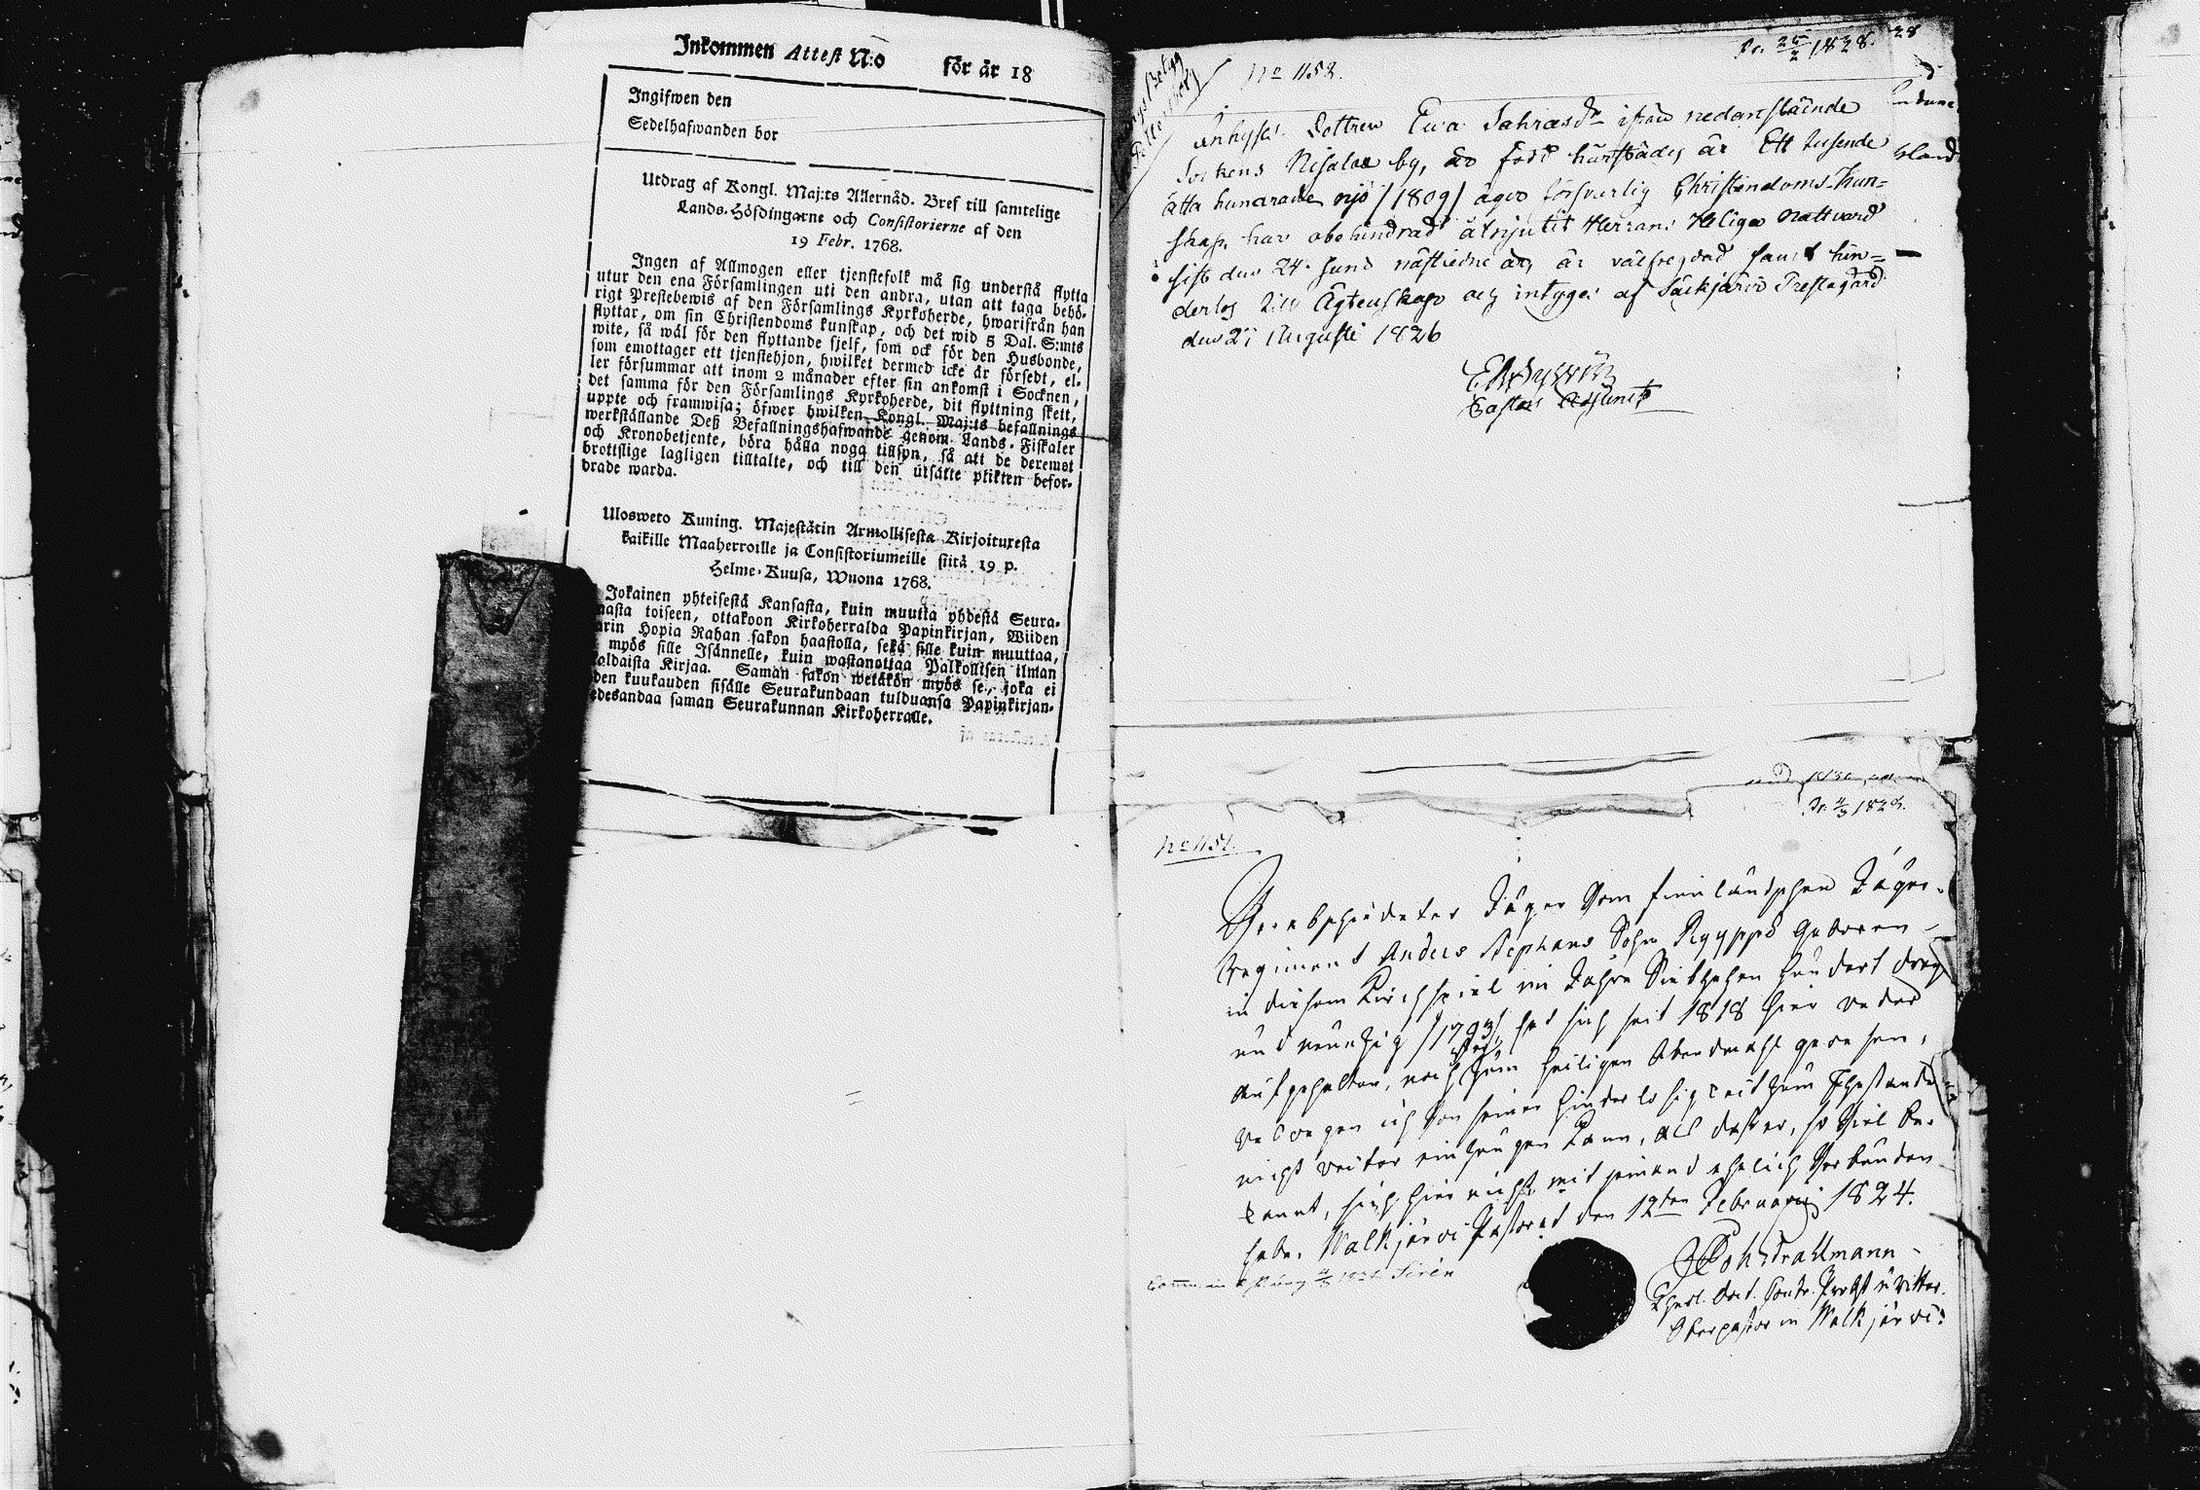 Inkommen Attest N:o för år 18
Ingifwen den
Sedelhafwanden bor
Utdrag af Kongl. Maj:ts Allernåd. Bref till samtelige
Lands-Höfdingarne och Consistorierne af den
19 Febr. 1768.
Ingen af Allmogen eller tjenstefolk må sig understå flytta
utur den ena Församlingen uti den andra, utan att taga behö-
rigt Prestebewis af den Församlings Kyrkoherde, hwarifrån han
flyttar, om sin Christendoms kunskap, och det wid 5 Dal. S:mts
wite, så wäl för den flyttande sjelf, som ock för den Husbonde,
som emottager ett tjenstehjon, hwilket dermed icke är försedt, el-
ler försummar att inom 2 månader efter sin ankomst i Socknen,
det samma för den Församlings Kyrkoherde, dit flyttning skett,
uppte och framwisa; öfwer hwilken Kongl. Maj:ts befallnings
werkställande Deß Befallningshafwande genom Lands-Fiskaler
och Kronobetjente, böra hålla noga tillsyn, så att de deremot
brottslige lagligen tilltalte, och till den utsatte plikten befor-
drade warda.
Ulosweto Kuning. Majestätin Armollisesta Kirjoituxesta
kaikille Maaherroille ja Consistoriumeille siitä 19 p.
Helme-Kuusa, Wuona 1768.
Jokainen yhteisestä Kansasta, kuin muutta yhdestä Seura-
nasta toiseen, ottakoon Kirkoherralda Papinkirjan, Wiiden
arin Hopia Rahan sakon haastolla, sekä sille kuin muuttaa,
myös sille Isännelle, kuin wastanottaa Palkollisen ilman
oldaista Kirjaa. Saman sakon wetäkön myös se, joka ei
den kuukauden sisälle Seurakundaan tulduansa Papinkirjan-
edesandaa saman Seurakunnan Kirkoherralle.
Pr. 25/2 1828. 28
No 1158.
Inhyses Dottren Ewa Sahrasdr ifrån nedanstående
Sockens Nisalax by, är född härstädes år Ett tusende
åtta hundrade nijo /1809/ äger försvarlig Christendoms-kun=
skap, har obehindrad åtnjutit Herrans Heliga Nattvard
sist den 24 Juni nästledne år, är välfregdad samt hin=
derlös till Ägtenskap och intygas af Säckjärvi Prestagård
den 27 Augusti 1826
Pastors Adjunct
Pr. 2/3 1828.
No 1151.
Verabschiedeter Jäger vom finnländschen Jäger-
Regiment Anders Stephans Sohn Ryyppö geboren
in diesem Kirchspiel im Jahre Siebzehen hundert drey
und neunzig /1793/ hat sich seit 1818 hier weder
aufgehalten, noch hier zum heiligen Abendmahl gewesen,
weswegen ich von seiner hinderlosigkeit zum Ehestande
nicht weiter einzeugen kann, als daß er, so viel be-
kannt, sich hier nicht mit jemand ehelich verbunden
habe. Walkjärvi Pastorat den 12ten Februarij 1824.
Sirén
Joh Strahlmann
Oberpastor in Walkjärvi.